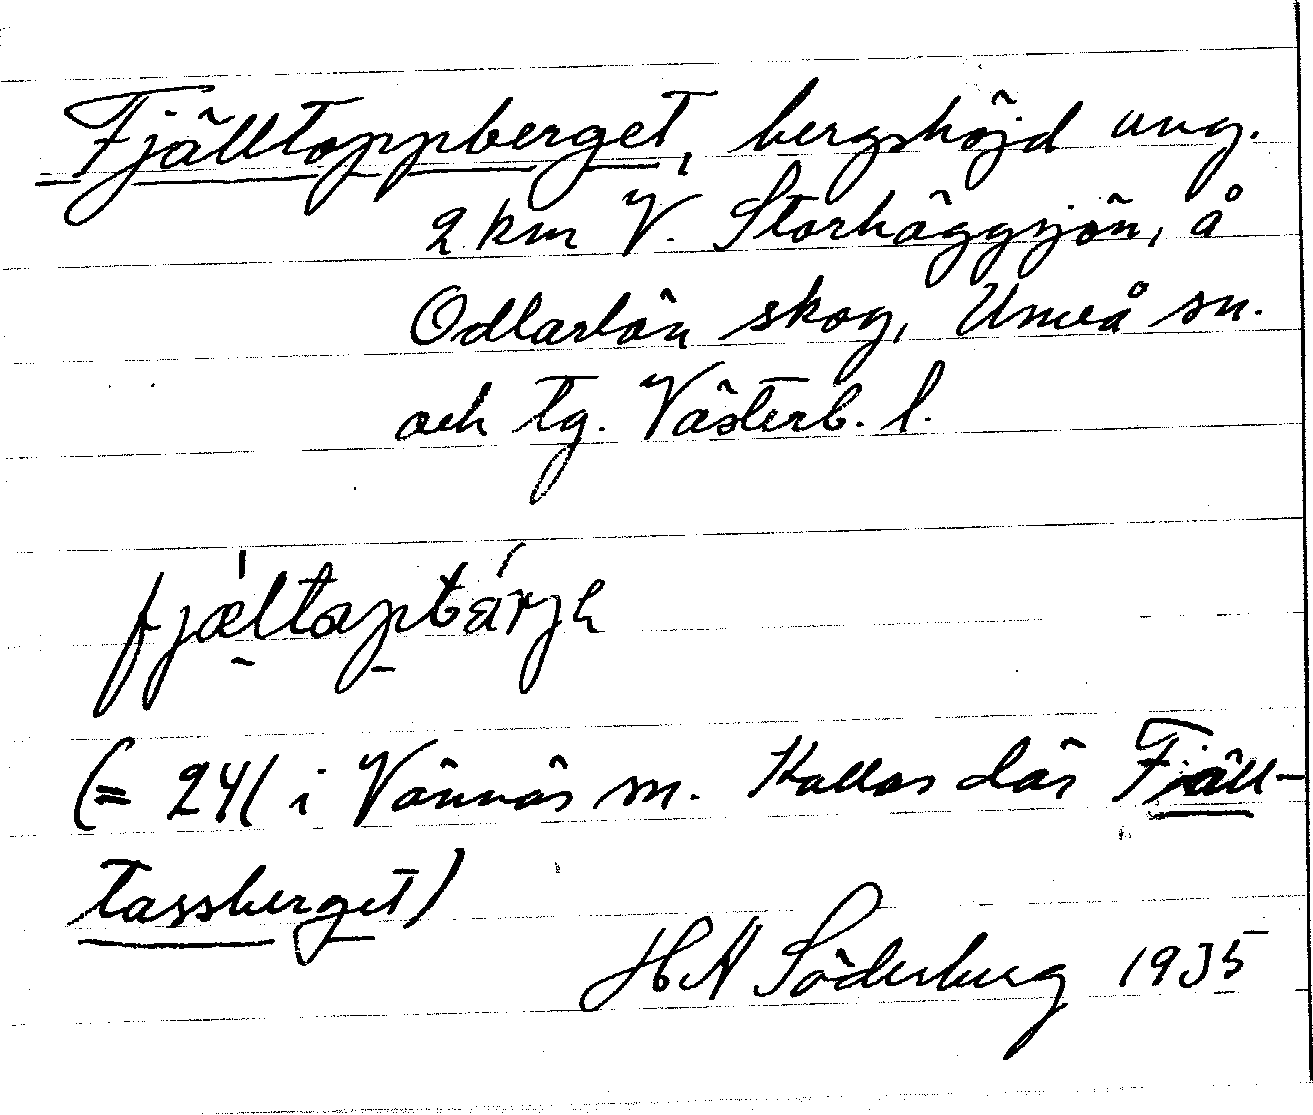 Fjälltoppberget, bergshöjd ung.
2 km V. Storhäggsjön, å
Odlarlån skog, Umeå sn.
och tg. Västerb. l.
fjæltaptbärjə
(= 241 i Vännäs sn. Kallas där Fjäll-
tassberget)
H A Söderberg 1935